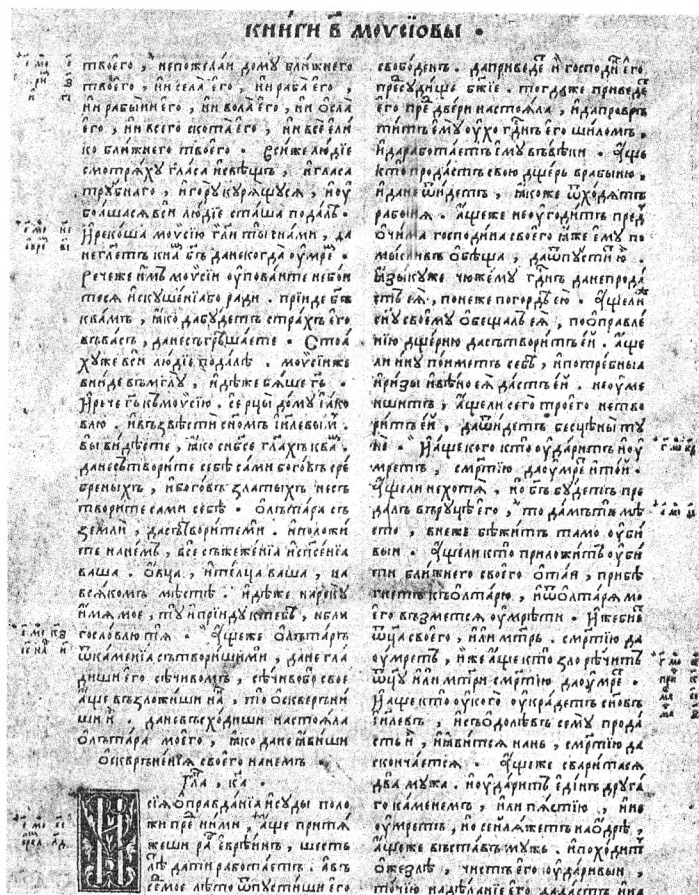 КНИГИ В҃ МОУСІѠВЫ .
твоего , непожелаи дому ближнего
твоего , ни села его , ни раба его ,
ни рабыни его , ни вола его , ни ѻсла
его , ни всего скота его , ни всѐ ели
ко ближнего твоего . Вси же людіе
смотряху гласа и свѣщь , и гласа
трубнаго , и горукурящуся , и оу
боашася вси людіе сташа подалѣ .
И рекоша моусію гл҃и ты снами , да
неглетъ кнам бг҃ъ данекогда оумрем .
Рече же имъ моусіи оуповаите небои
теся искушеніа бо ради . пріиде бг҃ъ
квамъ , яко дабудетъ страхъ его
въвасъ , данесъгрѣшаете . Стоа
хуже вси людіе подалѣ . моусіи же
вниде въмглу , идѣже бяше гь .
И рече гь къ моусію . се рцы дому іако
влю . и възвѣсти сном іи҃левым .
вы видѣсте , яко снбсе глахъ квам .
данесътворите себѣ сами боговъ сре
бреныхъ , и боговъ златыхъ несъ
творите сами себѣ . Олътара съ
земли , дасътворитеми . и положи
те нанемъ , все съжеженіа и спсеніа
ваша . Овца , и телца ваша , на
всякомъ мѣстѣ . идѣже нареку
имя мое , ту и пріиду ктебѣ , и бли
гословлю тія . Ащеже олътаръ
ѿкаменіа сътворишими , дане гла
диши его сѣчивомъ , сѣчивобо свое
аще възложиши нань , то осквернi
ши и . даневъсходиши настояла
олътара моего , яко дане явиши
осквръненіа своего нанемъ .
Гла , ка .
сія оправданіа и суды поло
жи пред ними , аще притя
жеши раб евреинъ , шесть
лѣ дати работаетъ . Авъ
семое лѣто ѿпустиши его
свободенъ . даприведеть и господнь его
пресудище бж҃іе . тогдаже приведе
его пред двери настояла , и дапровръ
титъ ему оухо гднъ его шиломъ .
и даработаетъ ему въвѣки . Аще
кто продастъ свою дщерь врабыню .
и дане ѿидетъ , якоже ѿходятъ
рабыня . ащеже неоугодитъ пред
очима господина своего яже ему по
моисливъ обѣща , даѿпустить ю .
Языкуже чюжему гднъ данепрода
сть ея , понеже погордѣ ею . Ащели
сну своему обещалъ ея , по оправле
нію дщерню дасътворитъ ей . аще
ли ину поиметъ себѣ , и потребныа
и ризы и вѣно ея дастъ ей . не оуме
ншитъ , ащели сего троего нетво
ритъ ей , даѿидетъ бесцѣны ту
не . И аще кого кто оударитъ и оу
мретъ , смртію даоумреть и той .
Ащели нехотя , но бг҃ъ будетъ пре
далъ въруцѣ его , то дамъти мѣ
сто , внеже бѣжитъ тамо оуби
выи . Ащели кто приложитъ оуби
ти ближнего своего отаи , и прибѣ
гнетъ къ олтарю , и ѿ олтаря мо
его възметъся оумрѣти . Иже бие
ѿца своего , или мтрь . смртію да
оумретъ , иже аще кто зло рѣчитъ
ѿцу или мтри смртію даоумреть .
И аще кто оукого оукрадетъ сновъ
іи҃левъ , и съодолѣвъ сему прода
сть и , и явится нань , смртію да
скончается . Ащеже сваритася
два мужа . и оударитъ единъ друга
го каменемъ , или пястію , и не
оумретъ , но сеналяжетъ на одрѣ ,
ащеже въставъ мужь . и походитъ
о жезлѣ , чистъ его оударивыи ,
точію надѣланіе его дадастъ ина